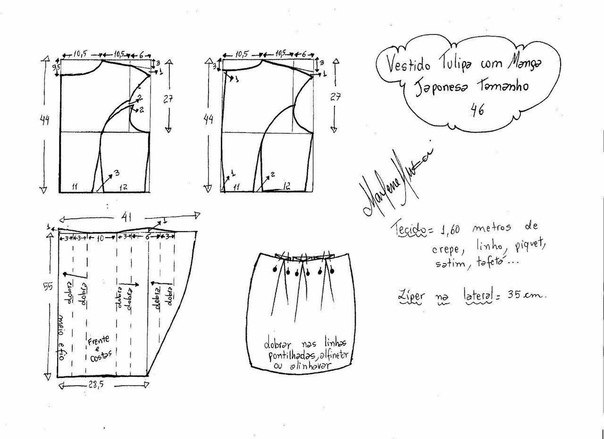 Vestido Tulipa com Manga
Japonesa Tamanho
46
10,5 10,5 6
9,5
3
1
2
2
44
27
3
11 12
10,5 10,5 6
3
3
1
44
27
1
2
11 12
Marlene Mukai
Tecido = 1,60 metros de
crepe, linho, piquet,
satim, tafetá...
Zíper na lateral = 35 cm.
41
1
1
3 3 10 3 6 3
55
dobra
dobra
dobra
dobra
dobra
dobra
meio e fio
Frente
e
costas
28,5
dobrar nas linhas
pontilhadas, alfinetar
ou alinhavar